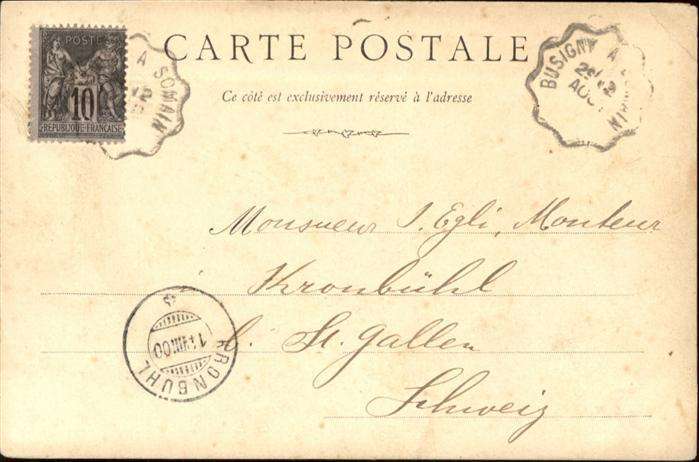 POSTE
10
RÉPUBLIQUE FRANÇAISE
A SOMAIN
CARTE POSTALE
Ce côté est exclusivement réservé à l'adresse
BUSIGNY A SOMAIN
AOU
Monsieur J. Egli, Monteur
Kronbühl
b. St. Gallen
Schweiz
KRONBÜHL
VIII.00